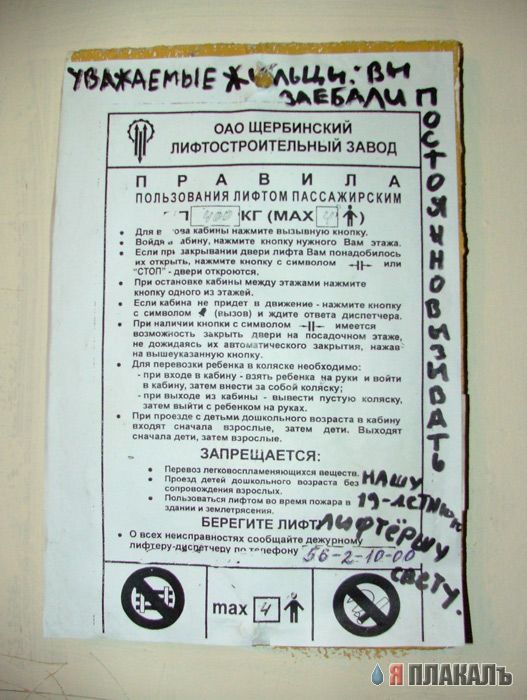 УВАЖАЕМЫЕ ЖИЛЬЦЫ: ВЫ
ЗАЕБАЛИ
ПОСТОЯННО ВЫЗИВАТЬ
НАШУ
19-ЛЕТНЮЮ
ЛИФТЁРШУ
СВЕТУ.
ОАО ЩЕРБИНСКИЙ
ЛИФТОСТРОИТЕЛЬНЫЙ ЗАВОД
ПРАВИЛА
ПОЛЬЗОВАНИЯ ЛИФТОМ ПАССАЖИРСКИМ
400 КГ (MAX 4)
• Для вызова кабины нажмите вызывную кнопку.
• Войдя в кабину, нажмите кнопку нужного Вам этажа.
• Если при закрывании двери лифта Вам понадобилось
их открыть, нажмите кнопку с символом или
"СТОП" - двери откроются.
• При остановке кабины между этажами нажмите
кнопку одного из этажей.
• Если кабина не придет в движение - нажмите кнопку
с символом (вызов) и ждите ответа диспетчера.
• При наличии кнопки с символом имеется
возможность закрыть двери на посадочном этаже,
не дожидаясь их автоматического закрытия, нажав
на вышеуказанную кнопку.
• Для перевозки ребенка в коляске необходимо:
- при входе в кабину - взять ребенка на руки и войти
в кабину, затем внести за собой коляску;
- при выходе из кабины - вывести пустую коляску,
затем выйти с ребенком на руках.
• При проезде с детьми дошкольного возраста в кабину
входят сначала взрослые, затем дети. Выходят
сначала дети, затем взрослые.
ЗАПРЕЩАЕТСЯ:
• Перевоз легковоспламеняющихся веществ.
• Проезд детей дошкольного возраста без
сопровождения взрослых.
• Пользоваться лифтом во время пожара в
здании и землетрясения.
БЕРЕГИТЕ ЛИФТ
• О всех неисправностях сообщайте дежурному
лифтеру-диспетчеру по телефону 56-2-10-00
max 4
Я ПЛАКАЛЪ